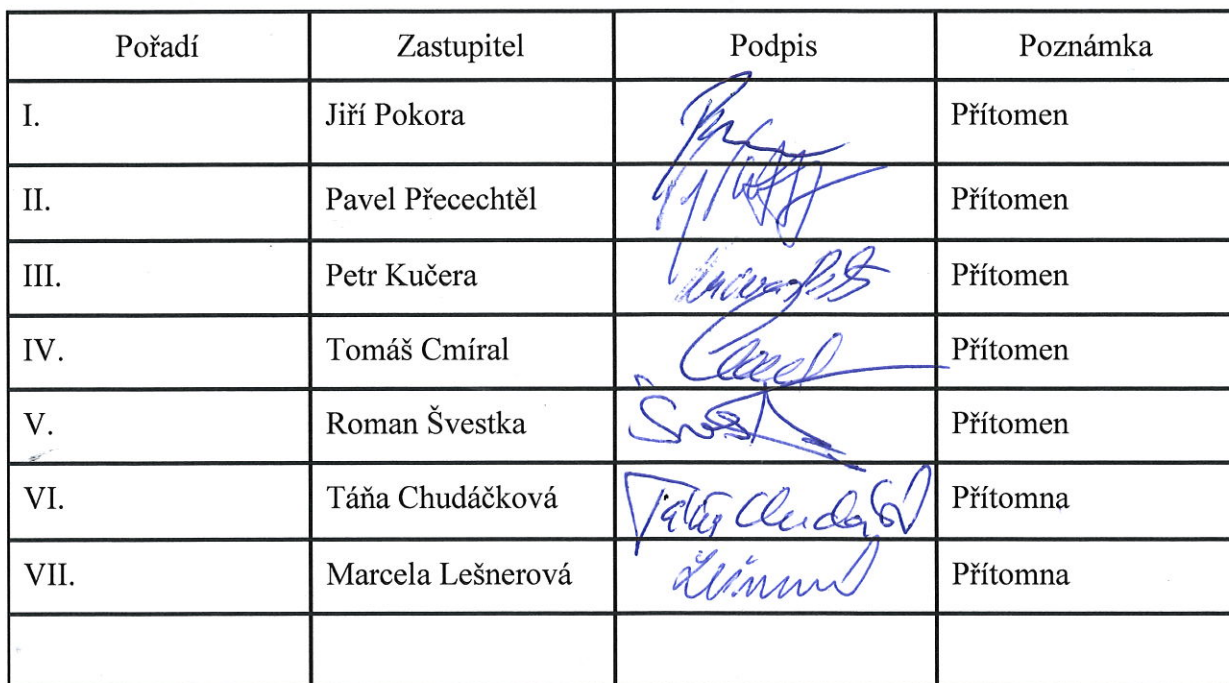 Pořadí Zastupitel Podpis Poznámka
I. Jiří Pokora Přítomen
II. Pavel Přecechtěl Přítomen
III. Petr Kučera Přítomen
IV. Tomáš Cmíral Přítomen
V. Roman Švestka Přítomen
VI. Táňa Chudáčková Přítomna
VII. Marcela Lešnerová Přítomna